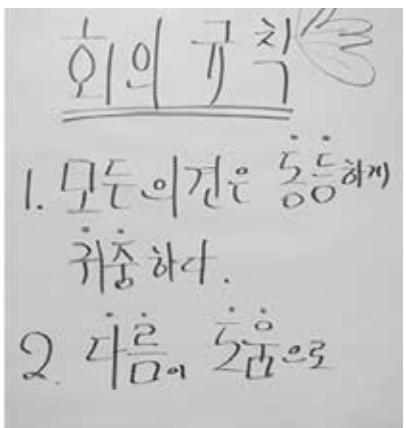 회의 규칙
1. 모든 의견은 동등하게
귀중하다.
2. 다름이 도움으로